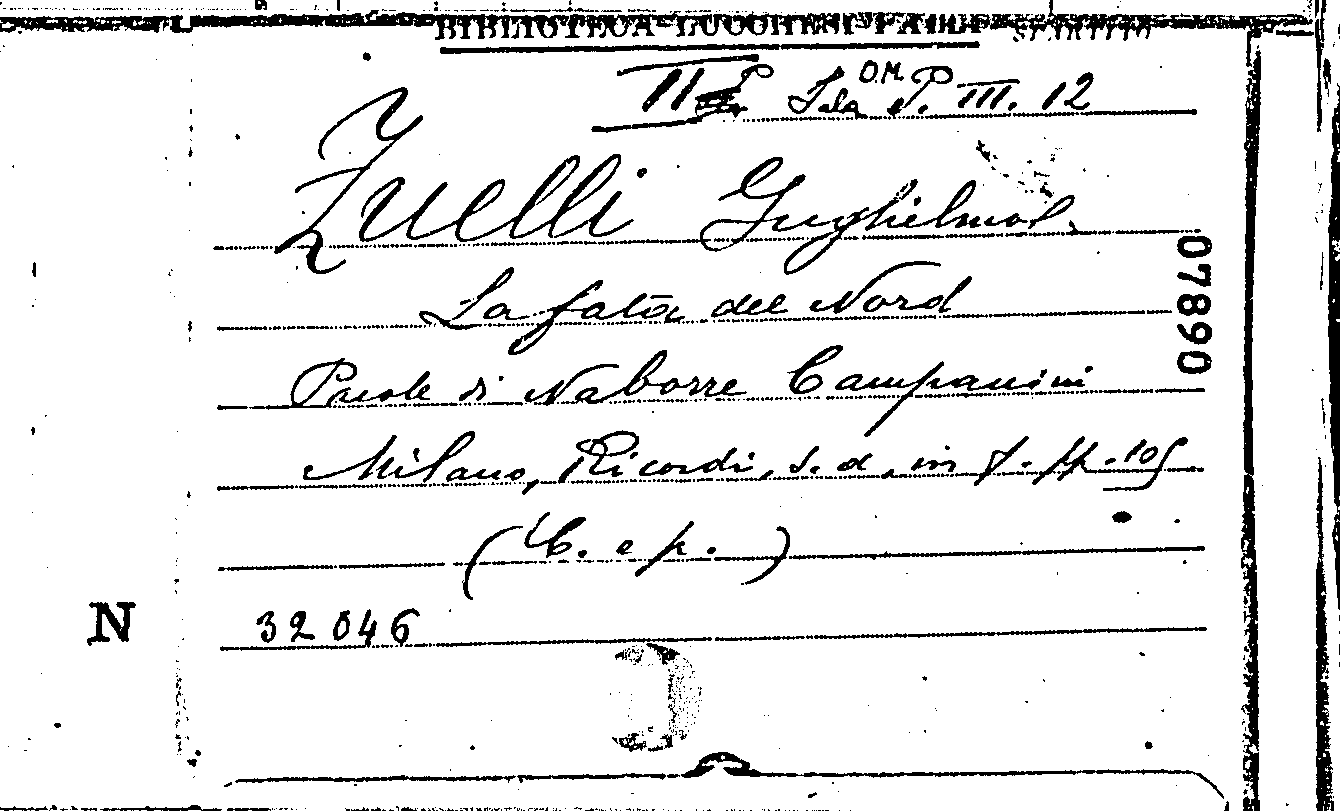 BIBLIOTECA LUCCHESI-PALLI
II Sala O.M. P. III. 12
Zuelli Guglielmo
La fata del Nord
Parole di Naborre Campanini
Milano, Ricordi, s. d., in f. pp. 105
(C. e p.)
N 32046
07890